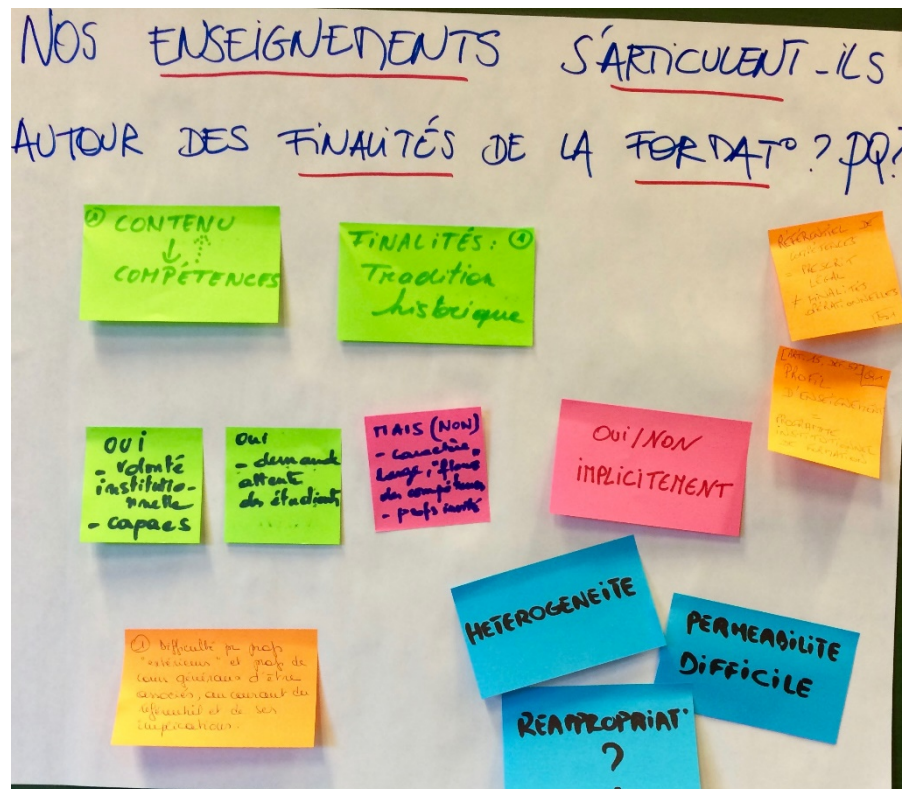 NOS ENSEIGNEMENTS S'ARTICULENT-ILS
AUTOUR DES FINALITÉS DE LA FORMAT° ? PQ?
② CONTENU
↓
COMPÉTENCES
FINALITÉS: ①
Tradition
historique
RÉFÉRENTIEL DE
COMPÉTENCES
= PRESCRIT
LÉGAL
≠ FINALITÉS
OPÉRATIONNELLES
PROFIL
D'ENSEIGNEMENT
=
INSTITUTIONNEL
DE FORMATION
OUI
- volonté
institutio-
nnelle
- capaes
OUI
- demande
attente
des étudiants
MAIS (NON)
- caractère
large, flous
des compétences
- profs invités
OUI/NON
IMPLICITEMENT
① Difficulté pr profs
"extérieurs" et profs de
cours généraux d'être
associés, au courant du
référentiel et de ses
implications.
HETEROGENEITE
PERMEABILITE
DIFFICILE
REAPPROPRIAT°
?